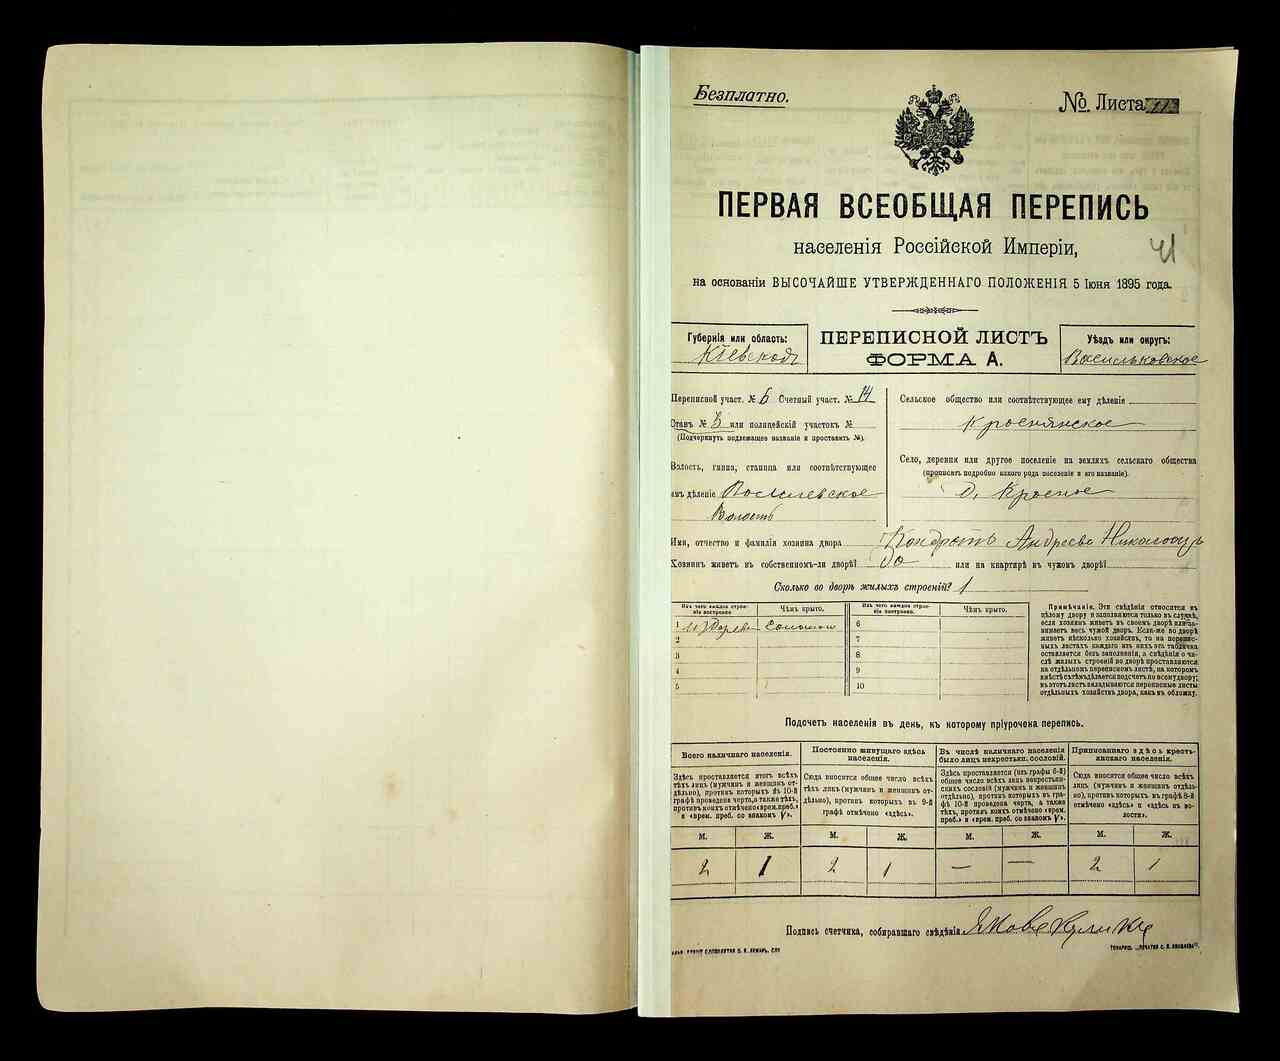 Безплатно.
№ Листа 113
ПЕРВАЯ ВСЕОБЩАЯ ПЕРЕПИСЬ
населенія Россійской Имперіи,
41
на основаніи ВЫСОЧАЙШЕ УТВЕРЖДЕННАГО ПОЛОЖЕНІЯ 5 Іюня 1895 года.
Губернія или область:
Кіевская
ПЕРЕПИСНОЙ ЛИСТЪ
ФОРМА А.
Уѣздъ или округъ:
Васильковское
Переписной участ. № 6 Счетный участ. № 14
Станъ № 3 или полицейскій участокъ №
(Подчеркнуть подлежащее названіе и проставить №).
Волость, гмина, станица или соотвѣтствующее
имъ дѣленіе Василевское
Волость
Сельское общество или соотвѣтствующее ему дѣленіе
Краснянское
Село, деревня или другое поселеніе на земляхъ сельскаго общества
(прописать подробно какого рода поселеніе и его названіе).
д. Красное
Имя, отчество и фамилія хозяина двора Кондратъ Андреевъ
Хозяинъ живетъ въ собственномъ-ли дворѣ? да или на квартирѣ въ чужомъ дворѣ?
Сколько во дворѣ жилыхъ строеній? 1
Изъ чего каждое строеніе построено.
Чѣмъ крыто.
Изъ чего каждое строеніе построено.
Чѣмъ крыто.
1 изъ дерева соломою 6
2 7
3 8
4 9
5 10
Примѣчаніе. Эти свѣдѣнія относятся къ
цѣлому двору и заполняются только въ случаѣ,
если хозяинъ живетъ въ своемъ дворѣ или за-
нимаетъ весь чужой дворъ. Если-же во дворѣ
живетъ нѣсколько хозяйствъ, то на перепис-
ныхъ листахъ каждаго изъ нихъ эта табличка
оставляется безъ заполненія, а свѣдѣнія о чи-
слѣ жилыхъ строеній во дворѣ проставляются
на отдѣльномъ переписномъ листѣ, на которомъ
вмѣстѣ съ тѣмъ дѣлается подсчетъ по всему двору;
въ этотъ листъ вкладываются переписные листы
отдѣльныхъ хозяйствъ двора, какъ въ обложку.
Подсчетъ населенія въ день, къ которому пріурочена перепись.
Всего наличнаго населенія.
Здѣсь проставляется итогъ всѣхъ
тѣхъ лицъ (мужчинъ и женщинъ от-
дѣльно), противъ которыхъ въ 10-й
графѣ проведена черта, а также тѣхъ,
противъ коихъ отмѣчено «врем. преб.»
и «врем. преб. со знакомъ V».
Постоянно живущаго здѣсь
населенія.
Сюда вносится общее число всѣхъ
тѣхъ лицъ (мужчинъ и женщинъ от-
дѣльно), противъ которыхъ въ 9-й
графѣ отмѣчено «здѣсь».
Въ числѣ наличнаго населенія
было лицъ некрестьян. сословій.
Здѣсь проставляется (изъ графы 6-й)
общее число всѣхъ лицъ некрестьян-
скихъ сословій (мужчинъ и женщинъ
отдѣльно), противъ которыхъ въ гра-
фѣ 10-й проведена черта, а также
тѣхъ, противъ коихъ отмѣчено «врем.
преб.» и «врем. преб. со знакомъ V».
Приписаннаго здѣсь кресть-
янскаго населенія.
Сюда вносится общее число всѣхъ
лицъ (мужчинъ и женщинъ отдѣль-
но), противъ которыхъ въ графѣ 8-й
отмѣчено «здѣсь» и «здѣсь въ во-
лости».
М. Ж. М. Ж. М. Ж. М. Ж.
2 1 2 1 — — 2 1
Подпись счетчика, собиравшаго свѣдѣнія